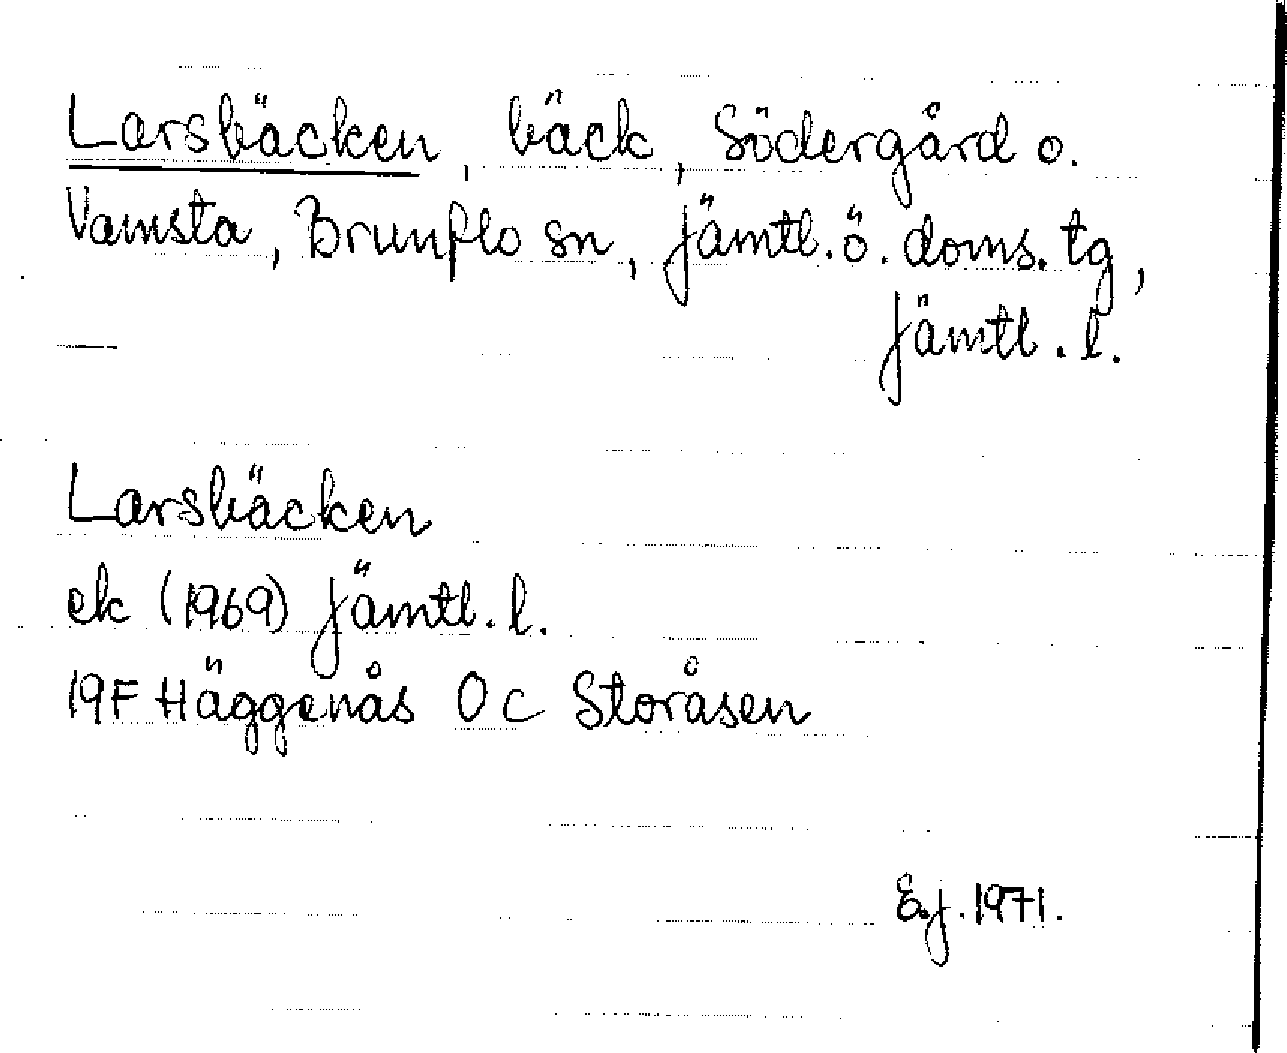 Larsbäcken, bäck, Södergård o.
Vamsta, Brunflo sn, Jämtl. ö. doms. tg,
Jämtl. l.
Larsbäcken
ek (1969) Jämtl. l.
19F Häggenås 0 c Storåsen
E.J. 1971.